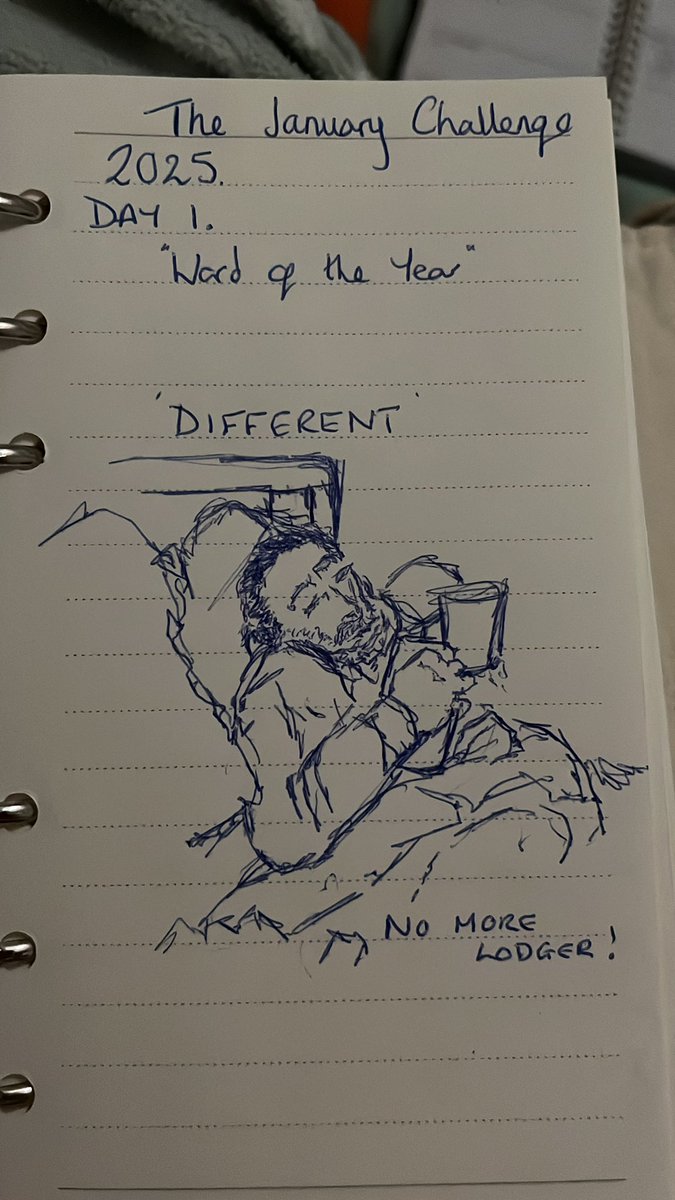 The January Challenge
2025.
DAY 1.
"Word of the Year"
'DIFFERENT'
NO MORE
LODGER!